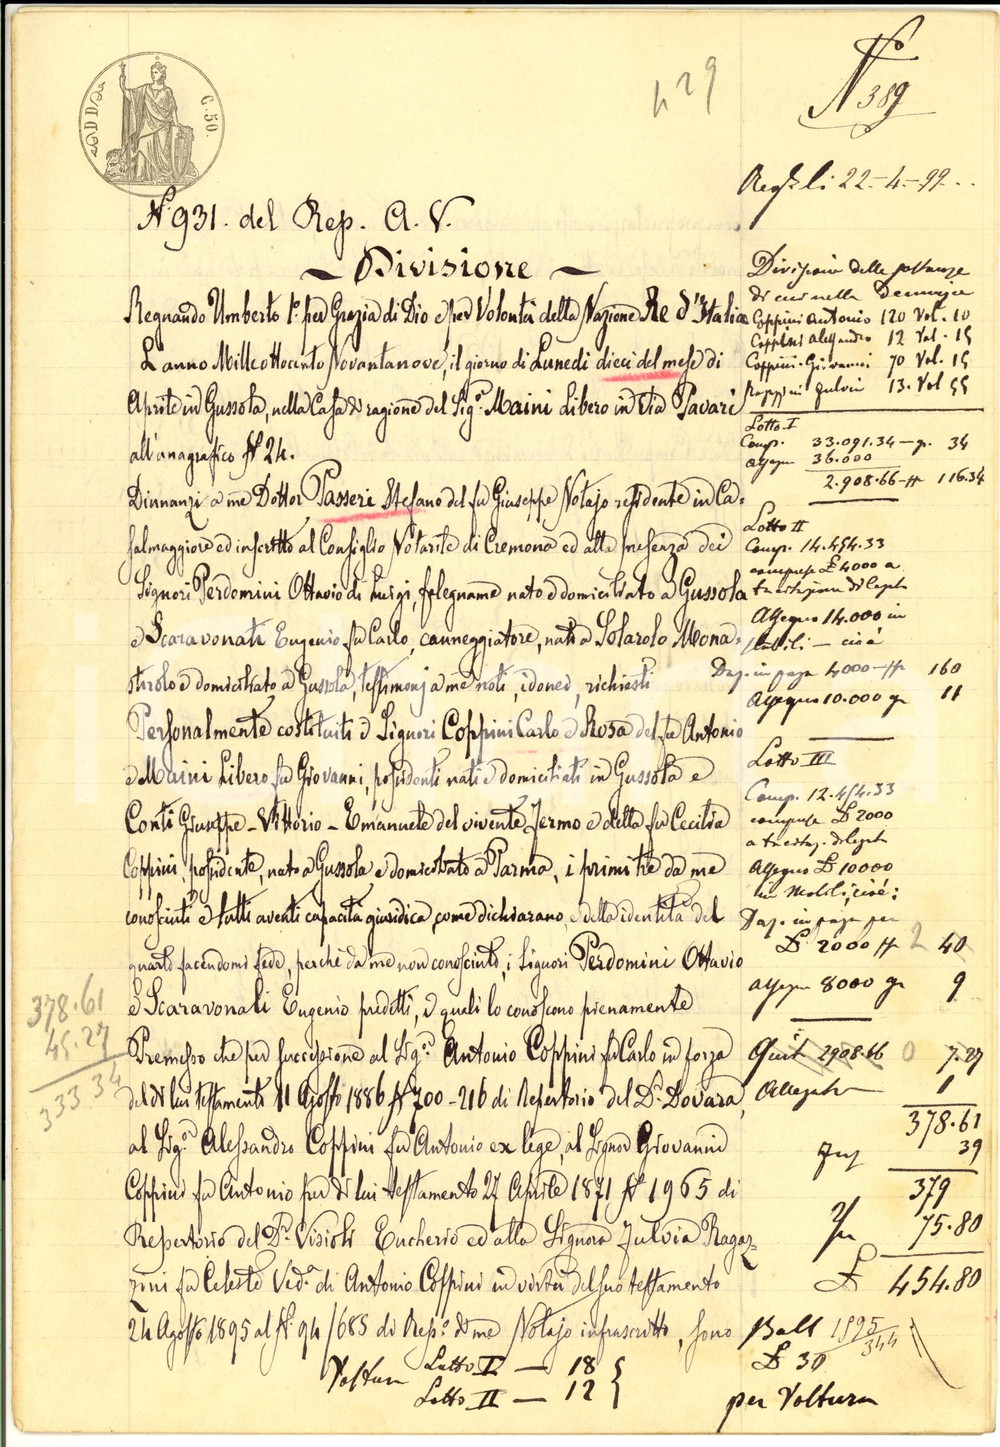 C. 50.
429
N° 389
li 22-4-99
N. 931. del Rep. A. V.
Divisione
Regnando Umberto I° per Grazia di Dio e per Volontà della Nazione Re d'Italia
L'anno Milleottocento Novantanove, il giorno di Lunedi dieci del mese di
Aprile in Gussola, nella Casa di ragione del Sig.r Maini Libero in Via Pavari
all'anagrafico N° 24.
Dinnanzi a me Dottor Passeri Stefano del fu Giuseppe Notajo residente in Ca=
salmaggiore ed inscritto al Consiglio Notarile di Cremona ed alla presenza dei
Signori Perdomini Ottavio di Luigi, falegname nato e domiciliato a Gussola
e Scaravonati Eugenio fu Carlo, canneggiatore, nato a Solarolo Mona=
sterolo e domiciliato a Gussola, testimonj a me noti, idonei, richiesti
Personalmente costituiti i Signori Coppini Carlo e Rosa del fu Antonio
e Maini Libero fu Giovanni, possidenti nati e domiciliati in Gussola e
Conti Giuseppe - Vittorio - Emanuele del vivente Fermo e della fu Cecilia
Coppini, possidente, nato a Gussola e domiciliato a Parma, i primi tre da me
conosciuti e tutti aventi capacità giuridica, come dichiarano, e della identità del
quarto facendomi fede, perchè da me non conosciuto, i Signori Perdomini Ottavio
e Scaravonati Eugenio predetti, i quali lo conoscono pienamente
Premesso che per successione al Sig.r Antonio Coppini fu Carlo in forza
del di lui testamento 11 Agosto 1886 N° 700 - 216 di Repertorio del D.r Dovara,
al Sig.or Alessandro Coppini fu Antonio ex lege, al Signor Giovanni
Coppini fu Antonio per di lui testamento 27 Aprile 1871 N° 1965 di
Repertorio del D.r Visioli Eucherio ed alla Signora Fulvia Ragaz=
zini fu Celeste Ved.a di Antonio Coppini in virtù del suo testamento
24 Agosto 1895 al N° 94/685 di Rep.o di me Notajo infrascritto, sono
Voltura Lotto I — 18
Lotto II — 12
Divisione delle sostanze
di cui nelle Denunzie
Coppini Antonio 120 Vol. 10
Coppini Alessandro 12 Vol. 15
Coppini Giovanni 70 Vol. 15
Fulvia 13. Vol 55
Lotto I
Comp. 33.091.34 — 34
Assegn 36.000
2.908.66 116.34
Lotto II
Comp. 14.454.33
compreso £ 4000 a
Assegno 14.000 in
stabili — cioè
Daz. in paga 4000 — 160
Assegno 10.000 11
Lotto III
Comp. 12.454.33
compreso £ 2000
Assegno £ 10000
in Mobili, cioè:
Daz. in paga per
£ 2000 2 40
Assegn 8000 9
Quit 2908.66 0 7.27
Allegato 1
378.61
39
379
75.80
£ 454.80
378.61
45.27
333 34
Boll 1895/344
£ 30
per Voltura